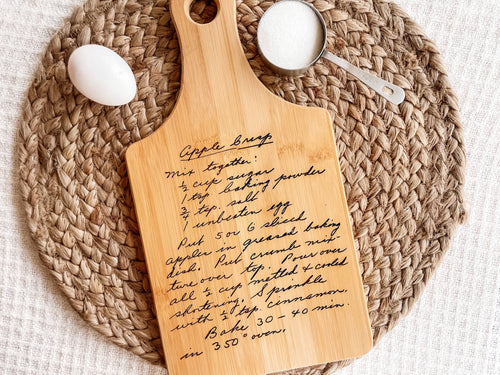 Apple Crisp
Mix together:
½ cup sugar
1 tsp. baking powder
¾ tsp. salt
1 unbeaten egg
Put 5 or 6 sliced
apples in greased baking
dish. Put crumb mix-
ture over top. Pour over
all ½ cup melted & cooled
shortening. Sprinkle
with ½ tsp. cinnamon.
Bake 30 - 40 min.
in 350° oven.